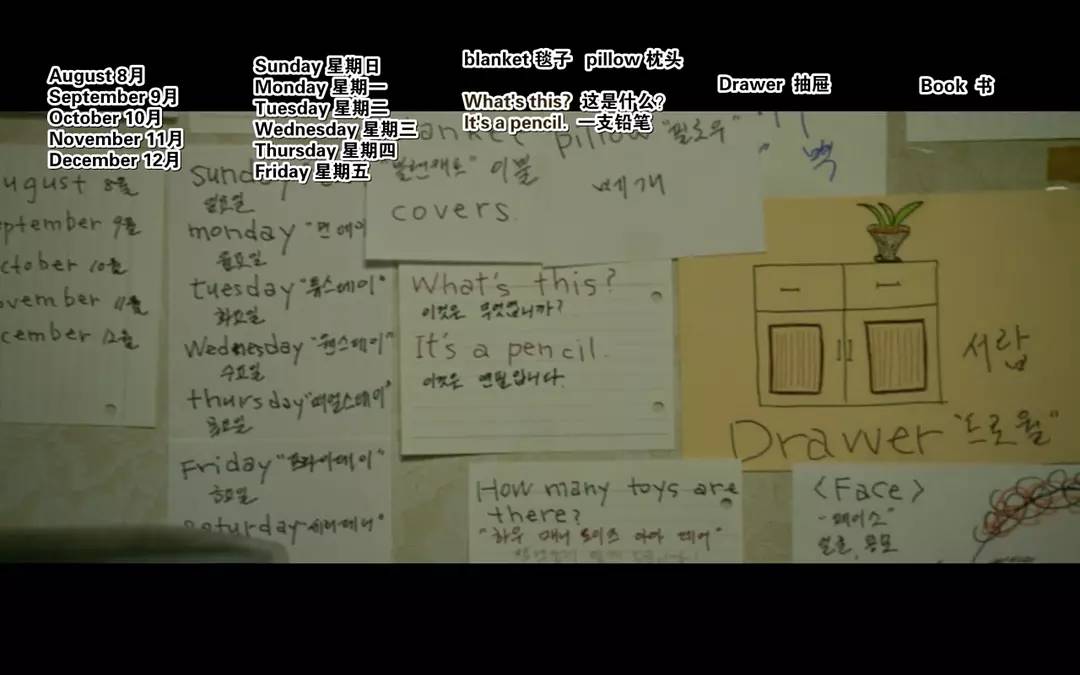 August 8月
September 9月
October 10月
November 11月
December 12月
Sunday 星期日
Monday 星期一
Tuesday 星期二
Wednesday 星期三
Thursday 星期四
Friday 星期五
blanket 毯子 pillow 枕头
What's this? 这是什么?
It's a pencil. 一支铅笔
Drawer 抽屉
Book 书
ugust 8월
ptember 9월
ctober 10월
ovember 11월
cember 12월
sunday
일요일
monday
월요일
tuesday "튜스데이"
화요일
Wednesday "웬스데이"
수요일
thursday
목요일
Friday "프라이데이"
금요일
saturday
pillow "필로우"
이불
베개
covers.
벽
What's this?
이것은 무엇입니까?
It's a pencil.
이것은 연필입니다.
서랍
Drawer "드로월"
How many toys are
there?
"하우 매니 토이즈 아아 데어"
<Face>
"페이스"
얼굴, 용모